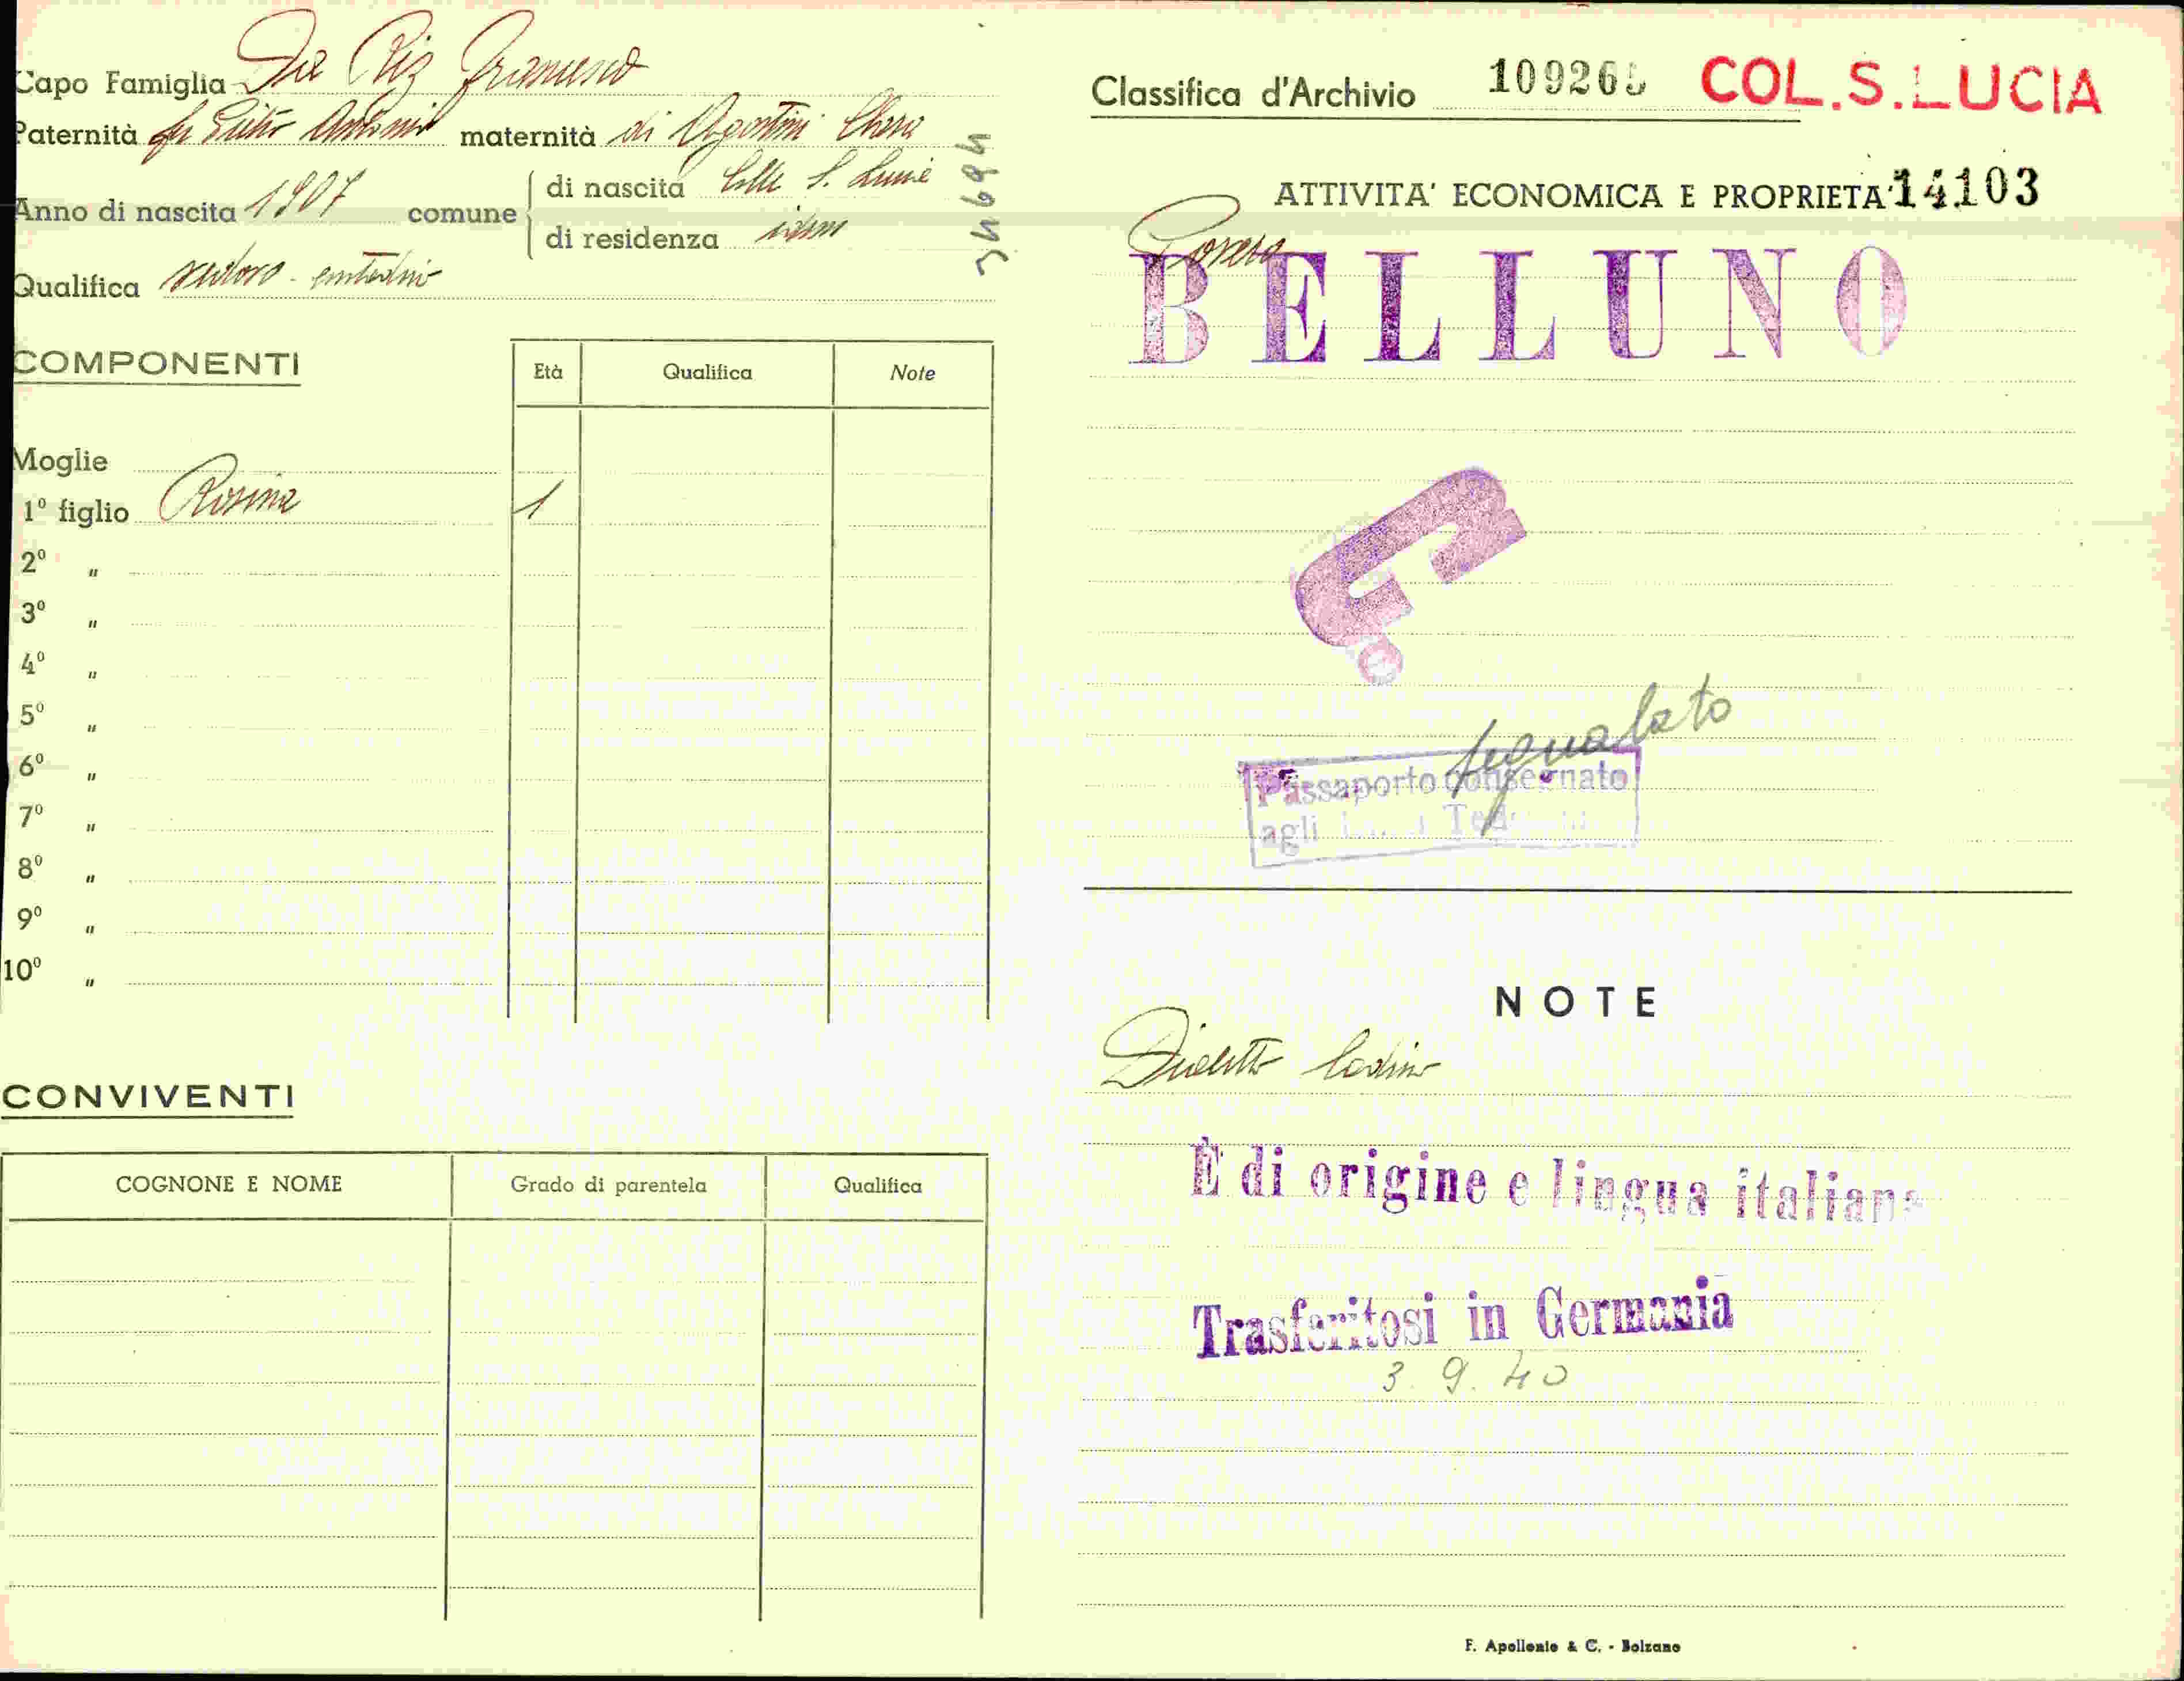 Capo Famiglia De Riz Francesco
Paternità fu Pietro Antonio maternità di Agostini Chiara
Anno di nascita 1907 comune
di nascita Colle S. Lucia
di residenza idem
Qualifica vedovo - contadino
COMPONENTI
Età Qualifica Note
Moglie
1º figlio Rosina 1
2º "
3º "
4º "
5º "
6º "
7º "
8º "
9º "
10º "
CONVIVENTI
COGNONE E NOME Grado di parentela Qualifica
Classifica d'Archivio COL.S.LUCIA
ATTIVITA' ECONOMICA E PROPRIETA' 14103
Povero
BELLUNO
G.
segnalato
Passaporto consegnato
agli
NOTE
Dialetto ladino
È di origine e lingua italiana
Trasferitosi in Germania
3.9.40
F. Apollonio & C. - Bolzano